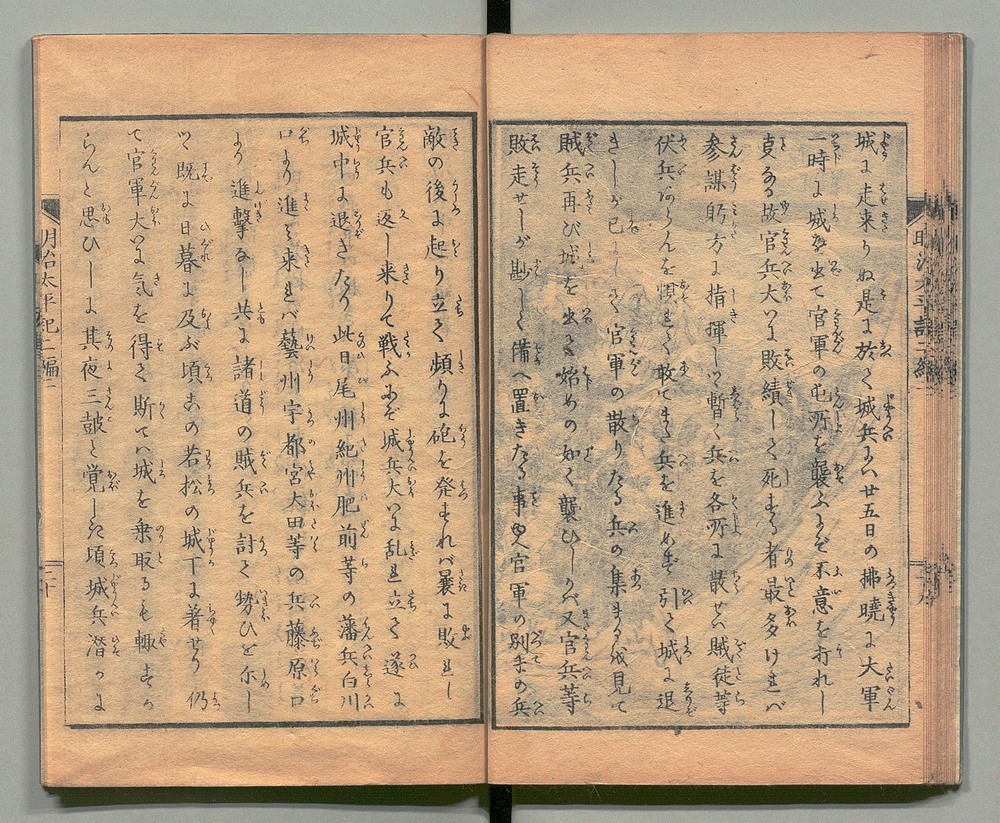 城に走来りぬ是に於て城兵ハ廿五日の拂曉に大軍
一時に城を出て官軍の屯所を襲ふまで不意を打れし
なる故官兵大いに敗績して死する者最多けれバ
参謀所方に指揮して暫く兵を各所に散せバ賊徒等
伏兵あらんを懼れて敢てまた兵を進め得ず引て城に退
きしが已にして官軍の散りたる兵の集まるを見て
賊兵再び城を出て始めの如く襲ひしかバ又官兵等
敗走せしが勘しく備へ置きたる事ゆゑ官軍の別手の兵
敵の後に起り立て頻りに砲を発すれバ曩に敗れし
官兵も返し来りて戦ふにぞ城兵大いに乱れ立て遂に
城中に退きたり此日尾州紀州肥前等の藩兵白川
口より進み来れバ藝州宇都宮大田等の兵藤原口
より進撃なし共に諸道の賊兵を討て勢ひを示し
ツヽ既に日暮に及ぶ頃この若松の城下に着せり仍
て官軍大いに気を得て斯てハ城を乗取るも輙すか
らんと思ひしに其夜三鼓と覚しき頃城兵潜かに
明治太平記二編二
明治太平記二編二
二十